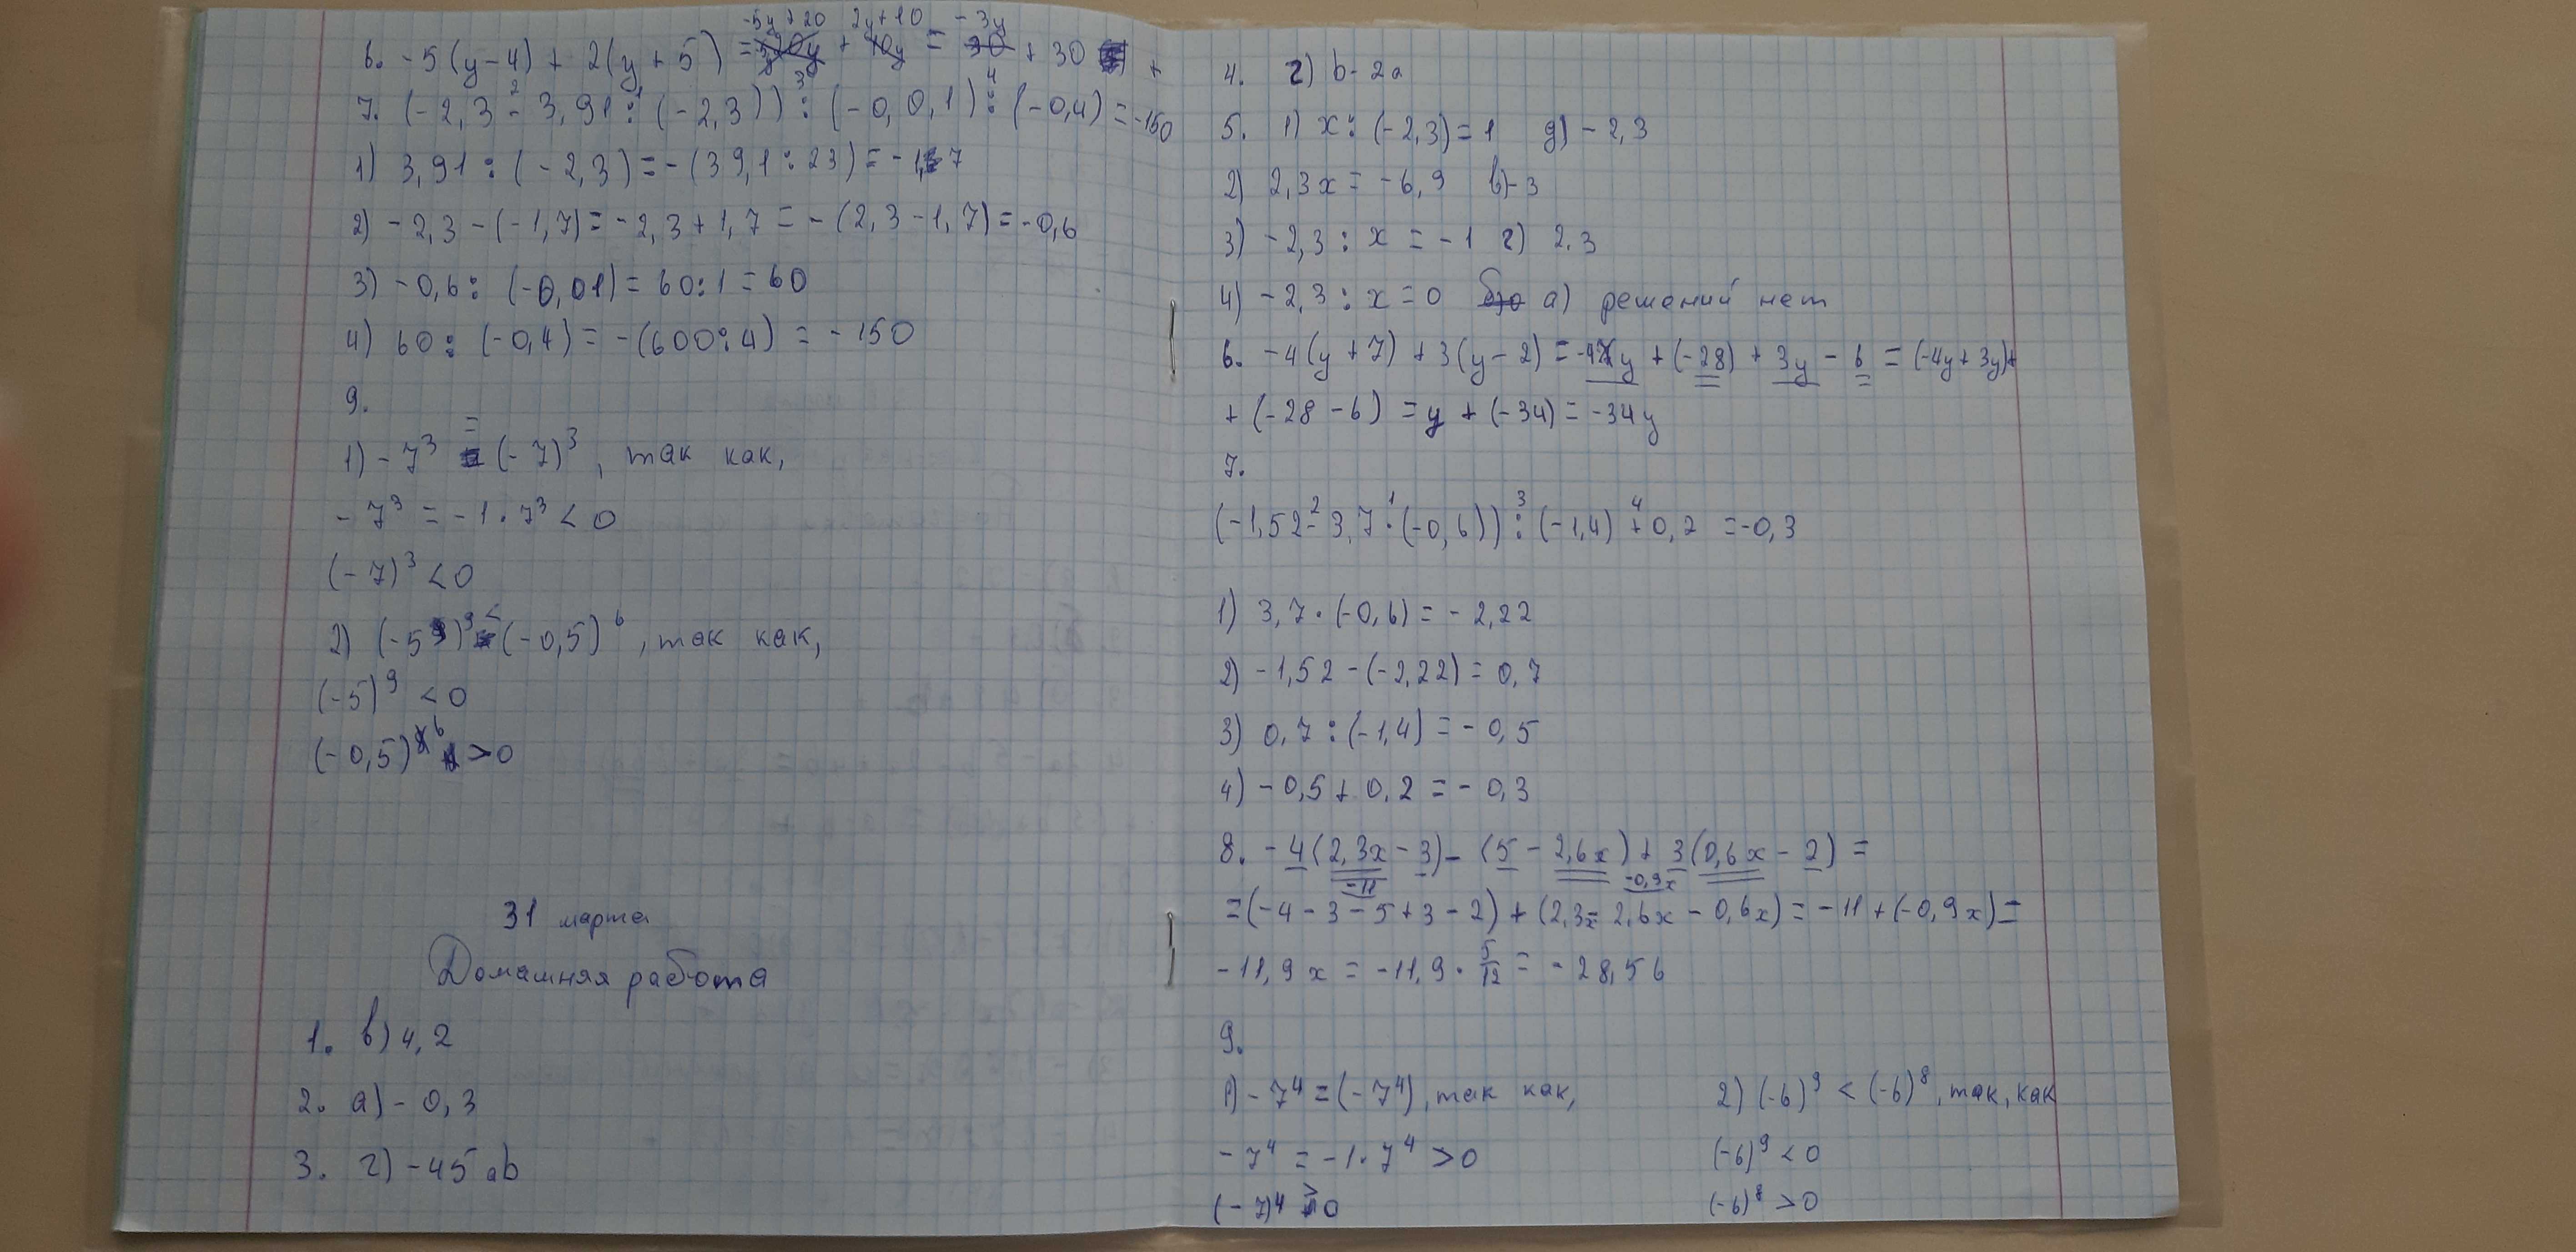 -5y+20 2y+10 -3y
6. -5(y-4) + 2(y+5) = + = + 30 +
7. (-2,3 - 3,91 : (-2,3)) : (-0,0,1) : (-0,4) = -150
1) 3,91 : (-2,3) = -(39,1 : 23) = -1,7
2) -2,3 - (-1,7) = -2,3 + 1,7 = -(2,3 - 1,7) = -0,6
3) -0,6 : (-0,01) = 60 : 1 = 60
4) 60 : (-0,4) = -(600 : 4) = -150
9.
1) -7³ = (-7)³, так как,
-7³ = -1 · 7³ < 0
(-7)³ < 0
2) (-5)⁹ < (-0,5)⁶, так как,
(-5)⁹ < 0
(-0,5)⁶ > 0
31 марта
Домашняя работа
1. в) 4,2
2. а) -0,3
3. г) -45ab
4. г) b-2a
5. 1) x : (-2,3) = 1 д) -2,3
2) 2,3x = -6,9 в) -3
3) -2,3 : x = -1 г) 2,3
4) -2,3 : x = 0 а) решений нет
6. -4(y+7) + 3(y-2) = -4y + (-28) + 3y - 6 = (-4y+3y)+
+ (-28-6) = y + (-34) = -34y
7.
(-1,52 - 3,7 · (-0,6)) : (-1,4) + 0,2 = -0,3
1) 3,7 · (-0,6) = -2,22
2) -1,52 - (-2,22) = 0,7
3) 0,7 : (-1,4) = -0,5
4) -0,5 + 0,2 = -0,3
8. -4(2,3x - 3) - (5 - 2,6x) + 3(0,6x - 2) =
-11 -0,9x
= (-4-3-5+3-2) + (2,3x - 2,6x - 0,6x) = -11 + (-0,9x) =
-11,9x = -11,9 · 5/12 = -28,56
9.
1) -7⁴ = (-7⁴), так как,
-7⁴ = -1 · 7⁴ > 0
(-7)⁴ > 0
2) (-6)⁹ < (-6)⁸, так, как
(-6)⁹ < 0
(-6)⁸ > 0